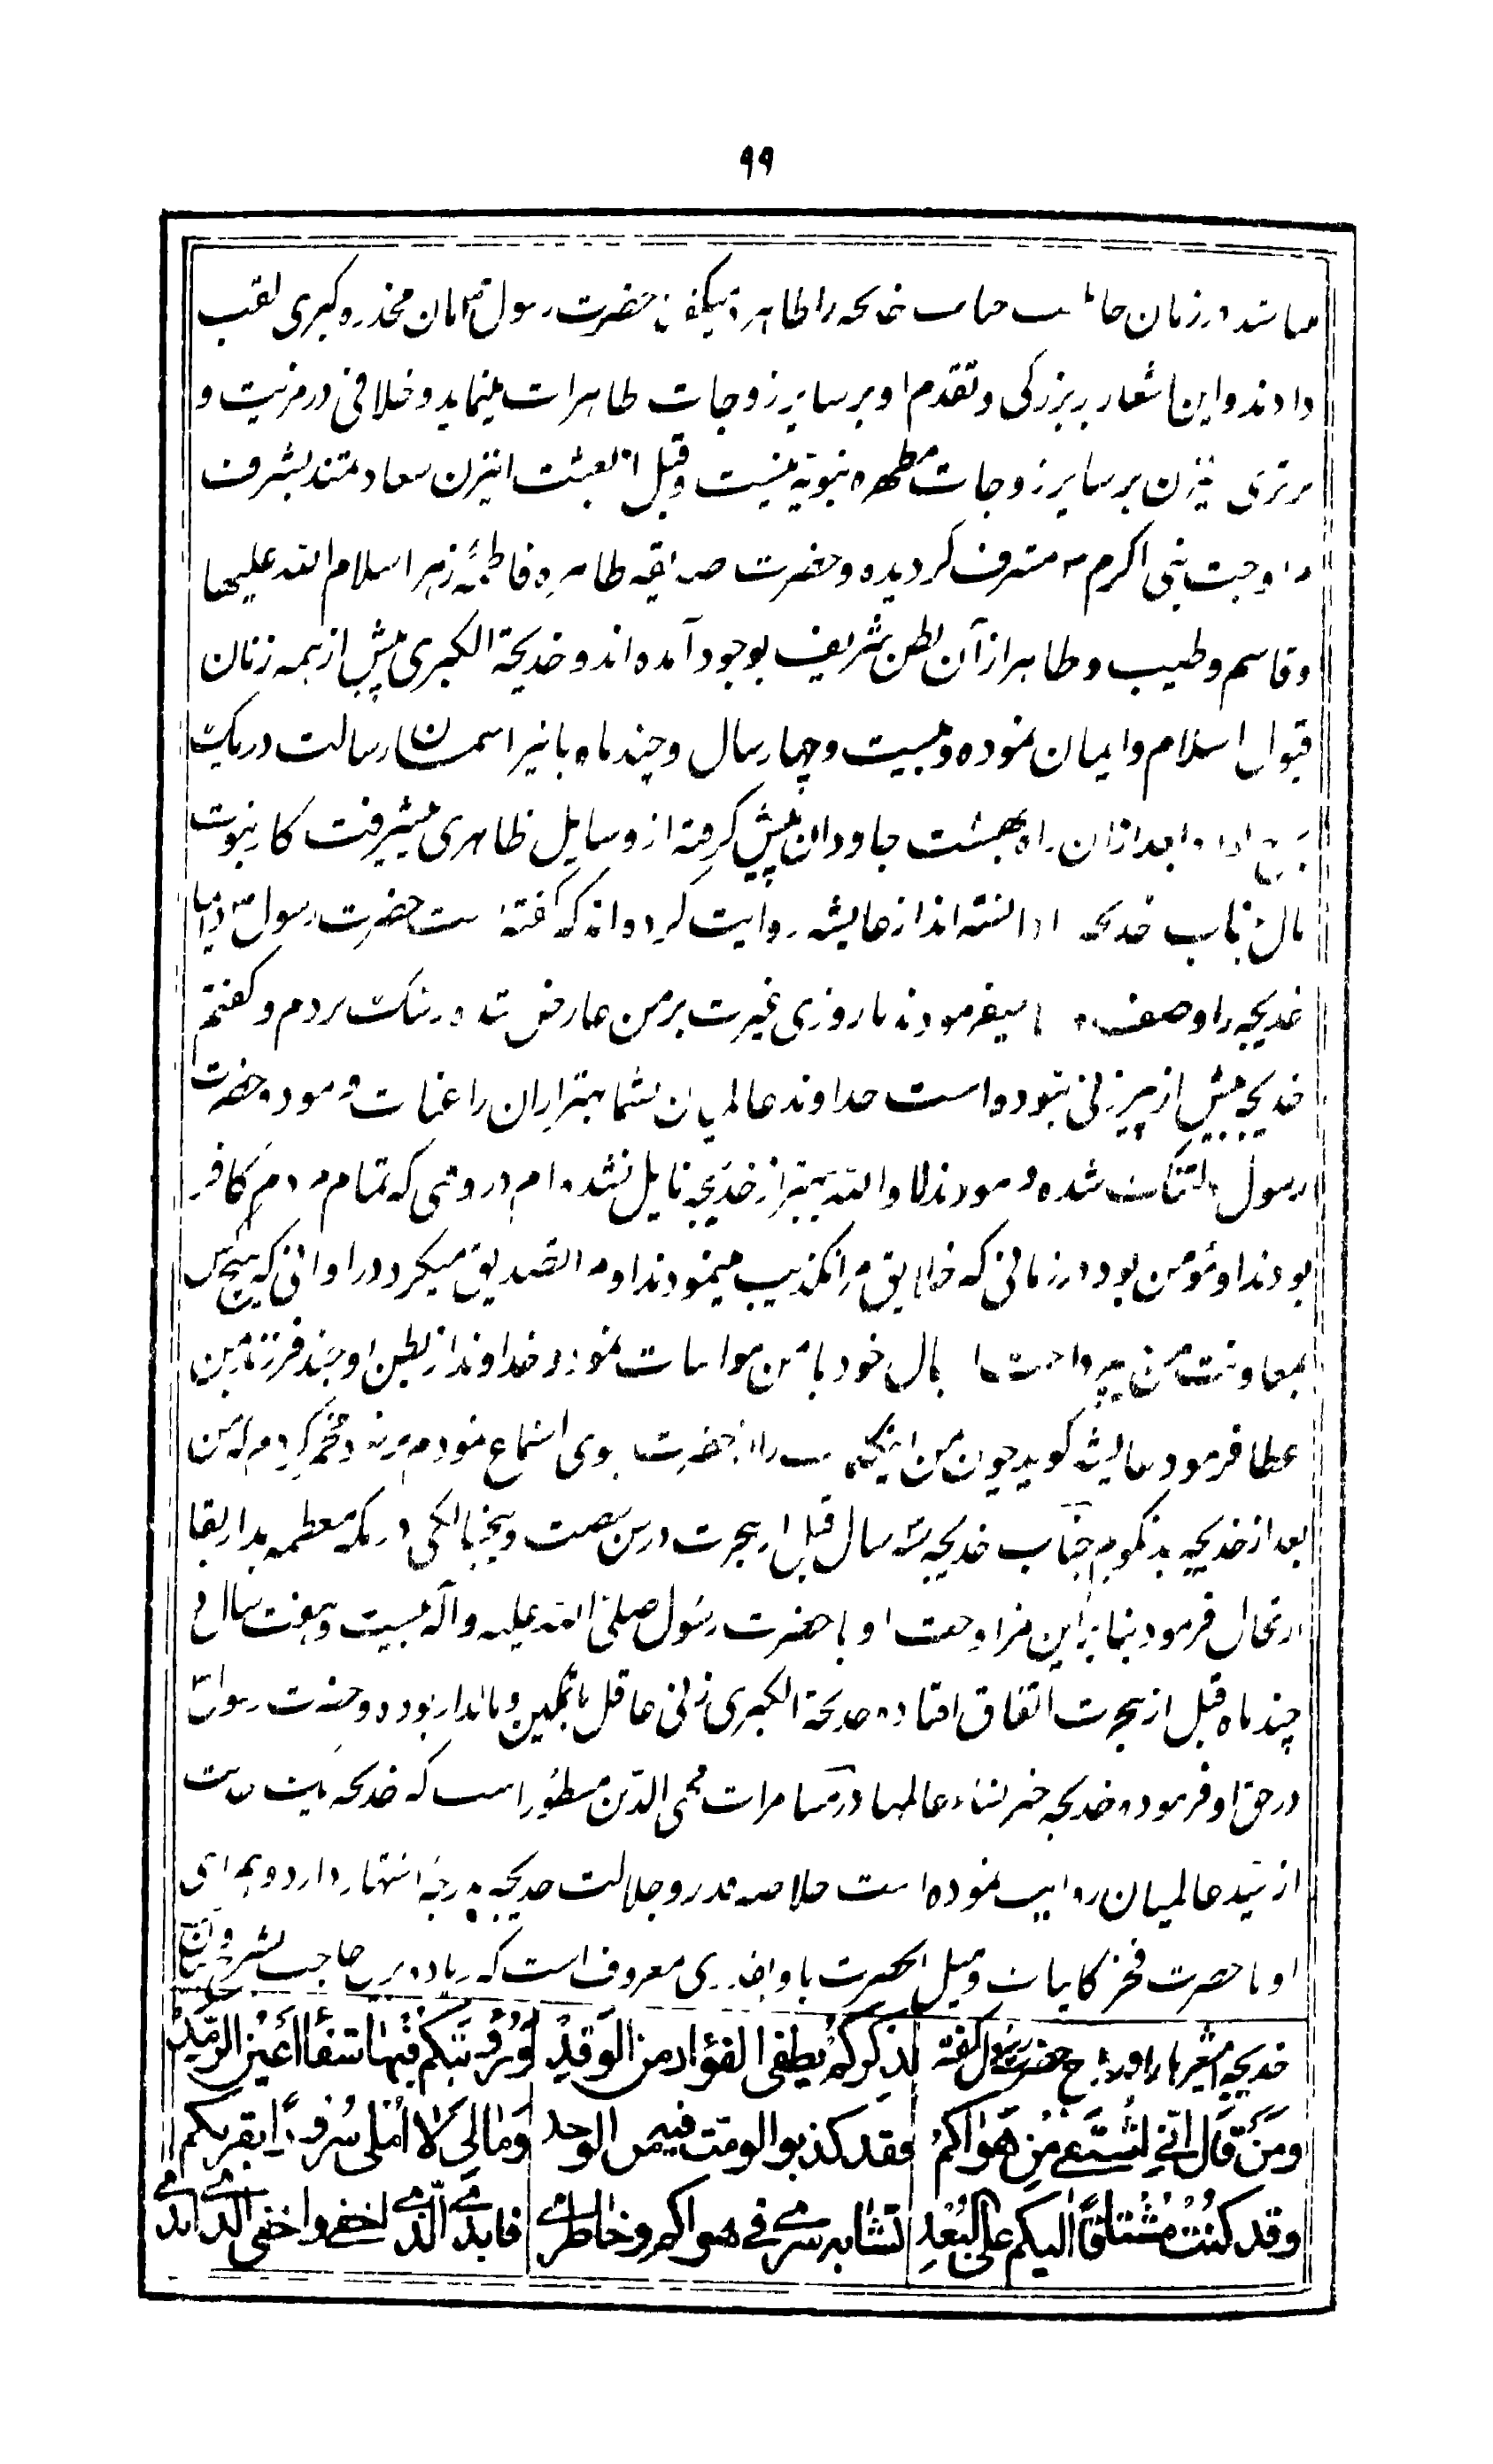 ۹۹
در زمان جاهلیت جناب خدیجه را طاهره میگفتند حضرت رسول بآن مخدره کبری لقب
دادند و این اشعار بر بزرکی و تقدم او بر سایر زوجات طاهرات مینماید و خلافی در مزیت و
برتری اینزن بر سایر زوجات مطهره نبویه نیست و قبل از بعثت اینزن سعادتمند بشرف
مزاوجت نبی اکرم ص مشرف کردیده و حضرت صدیقه طاهره فاطمهٔ زهرا سلام الله علیها
و قاسم و طیب و طاهر از آن بطن شریف بوجود آمده اند و خدیجة الکبری پیش از همه زنان
قبول اسلام و ایمان نموده و بیست و چهار سال و چند ماه با نیر آسمان رسالت در یک
بعد ازان راه بهشت جاودان پیش کرفته از وسایل ظاهری پیشرفت کار نبوت
مال جناب خدیجه را دانسته اند از عایشه روایت کرده اند که گفته است حضرت رسول ص
خدیجه را وصف میفرمودند تا روزی غیرت بر من عارض شد و رشک بردم و کفتم
خدیجه بیش از پیرزنی نبوده است خداوند عالمیان بشما بهتر از ان را عنایت فرموده حضرت
رسول دلتنک شده فرمودند لا والله بهتر از خدیجه نایل نشده ام در وقتی که تمام مردم کافر
بودند او مؤمن بود در زمانی که خلایق مرا تکذیب مینمودند او مرا تصدیق میکرد در اوانی که هیچکس
بمعاونت من نمیپرداخت بمال خود با من مواسات نمود و خداوند از بطن او چند فرزند بمن
عطا فرمود عایشه کوید چون من این را از حضرت نبوی استماع نمودم کردم که من
بعد از خدیجه بد نکویم جناب خدیجه سه سال قبل از هجرت در سن شصت و پنجسالکی در مکه معظمه بدار بقا
ارتحال فرمود بنابراین مزاوجت او با حضرت رسول صلی الله علیه و آله بیست و هفت سال و
چند ماه قبل از هجرت اتفاق افتاده خدیجة الکبری زنی عاقل با تمکین و مالدار بوده و حضرت رسول ص
در حق او فرموده خدیجه خیر نساء عالمها در مسامرات محیی الدین مسطور است که خدیجه یک حدیث
از سید عالمیان روایت نموده است خلاصه قدر و جلالت خدیجه بدرجه اشتهار دارد و همراهی
او با حضرت فخر کاینات و میل آنحضرت باو بقدری معروف است که زیاده برین حاجت بشرح و بیان
خدیجه شعرها را در مدح حضرت رسول کفته لذکرکم یطفی الفؤاد من الوقد
ومن قال انی لشتفی من هواکم فقد کذبوا لومت فیه من الوجد ومالی لا املی سرورا بقربکم
وقد کنت مشتاقاً الیکم علی البعد تشابه سری فی هواکم وخاطری فابدی الذی اخفی واخفی الذی ابدی